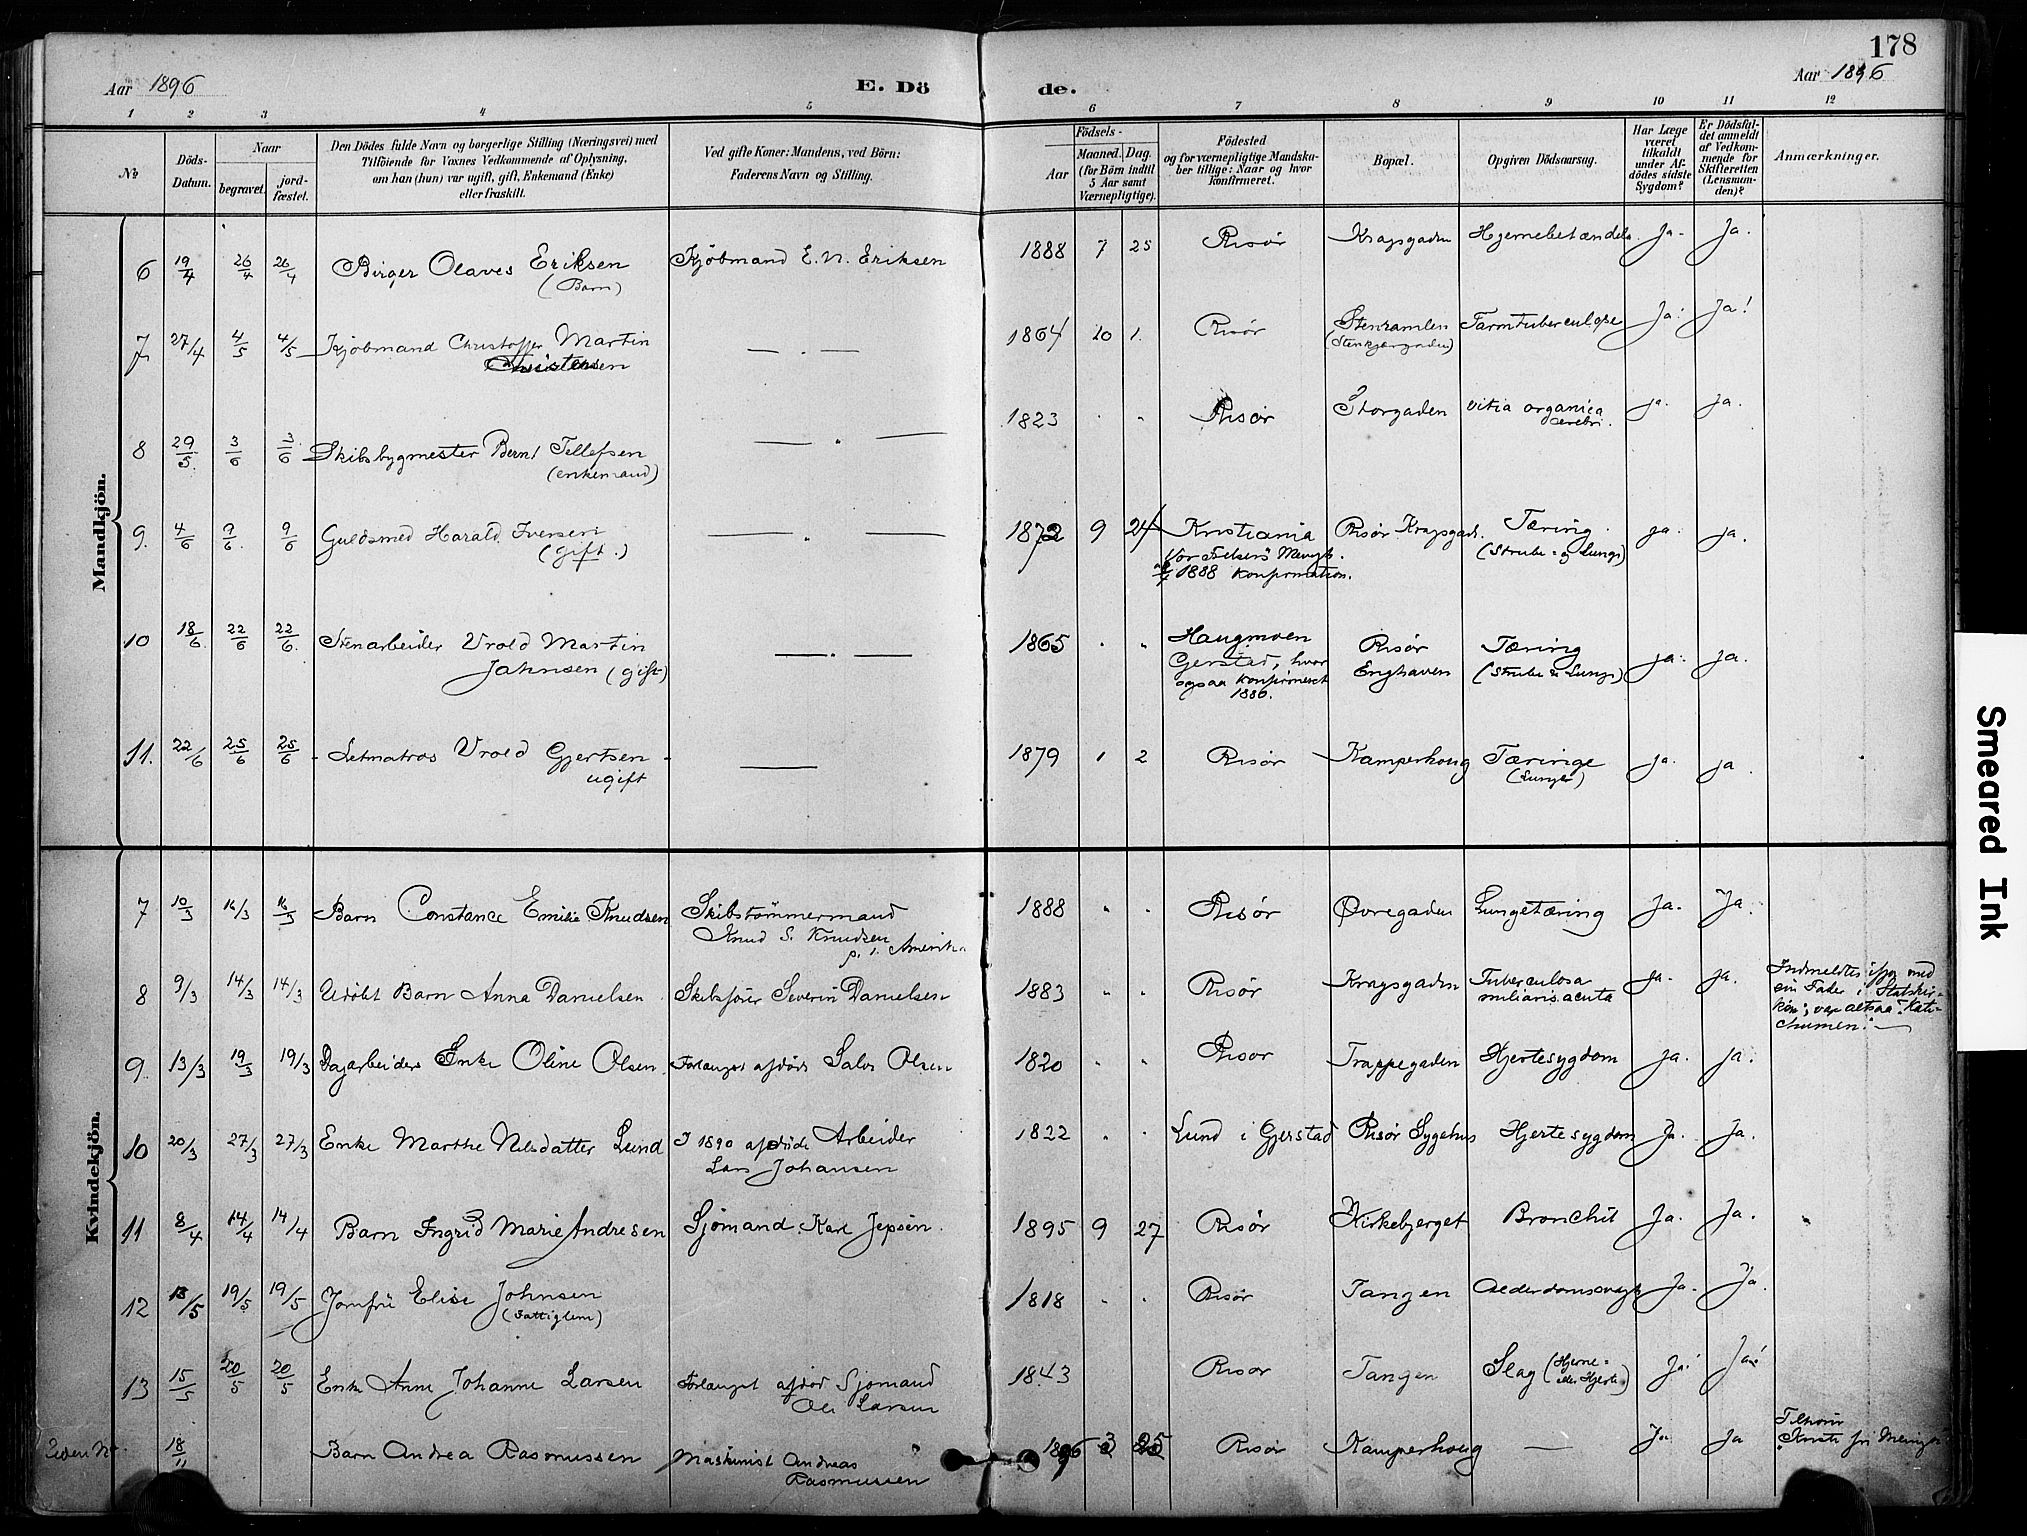 178
Aar 1896 E. Dö de. Aar 1896
1 2 3 4 5 6 7 8 9 10 11 12
№
Döds-Datum.
Naar
begravet.
jord-fæstet.
Den Dödes fulde Navn og borgerlige Stilling (Næringsvei) med
Tilföiende for Voxnes Vedkommende af Oplysning,
om han (hun) var ugift, gift, Enkemand (Enke)
eller fraskilt.
Ved gifte Koner: Mandens, ved Börn:
Faderens Navn og Stilling.
Födsels-
Aar
Maaned. Dag.
(for Börn indtil
5 Aar samt
Værnepligtige).
Födested
og for værnepligtige Mandska-
ber tillige: Naar og hvor
konfirmeret.
Bopæl.
Opgiven Dödsaarsag.
Har Læge
været
tilkaldt
under Af-
dödes sidste
Sygdom?
Er Dödsfal-
det anmeldt
af Vedkom-
mende for
Skifteretten
(Lensman-
den)?
Anmærkninger.
Mandkjön.
6 19/4 26/4 26/4 Birger Olaves Eriksen Kjöbmand E. N. Eriksen 1888 7 25 Risør Kragsgaden Hjernebetændels. Ja. Ja.
(Barn)
7 27/4 4/5 4/5 Kjöbmand Christoffer Martin — . — 1864 10 1. Risør Stenramlen Tarmtuberculose Ja. Ja!
Christensen (Stenkjærgaden)
8 29/5 3/6 3/6 Skibsbygmester Bernt Tellefsen — . — 1823 . „ Risør Storgaden vitia organica ja. ja.
(enkemand) cerebri.
9. 4/6 9/6. 9/6 Guldsmed Harald Iversen — . — 1872 9 24 Kristiania Risør Kragsgad. Tæring. ja. ja.
(gift.) Vor Frelsers Menigh. (Strube- og Lunge)
1888 konfirmation.
10 18/6. 22/6 22/6. Stenarbeider Vrold Martin — . — 1865 . „ Haugmoen Risør Tæring ja. ja.
Jahnsen (gift) Gjerstad, hvor Enghaven (Strube & Lunge)
ogsaa konfirmeret
1880.
11. 22/6 25/6 25/6 Letmatros Vrold Gjertsen — 1879 1 2 Risør Kamperhoug Tæringe ja. ja.
ugift (Lunge)
Kvindekjön.
7 10/3 16/3 16/3 Barn Constance Emilie Knudsen Skibstömmermand 1888 „ „ Risør Øvregaden Lungetæring Ja. Ja.
Knud S. Knudsen
p. t. Amerika
8 9/3 14/3 14/3 Udöbt Barn Anna Danielsen Skibsförer Severin Danielsen 1883 „ „ Risør Kragsgaden Tuberculosa ja. ja. Indmeldtes med
miliaris acuta sin Fader i Statskir-
ken; var altsaa Kate-
chumen.
9. 13/3 19/3 19/3 Dagarbeiders Enke Oline Olsen Forlængst afdöde Salve Olsen 1820 „ „ Risør Trappegaden Hjertesygdom ja. ja.
10 20/3 27/3 27/3 Enke Marthe Nilsdatter Lund I 1890 afdöde Arbeider 1822 . . Lund i Gjerstad Risør Sygehus Hjertesygdom Ja. Ja.
Lars Johansen
11 8/4 14/4 14/4 Barn Ingrid Marie Andresen Sjömand Karl Jepsen. 1895 9 27 Risør Kirkebjerget Bronchit Ja. Ja.
12 13/5 19/5 19/5 Jomfru Elise Johnsen 1818 . . Risør Tangen Alderdomssvagh. Ja. Ja.
(Fattiglem)
13 15/5 20/5 20/5 Enke Anne Johanne Larsen Forlængst afdöd Sjömand 1843 Risør Tangen Slag (Hjerne- Ja. Ja!
Ole Larsen eller Hjerte.)
Uden No. 18/11 Barn Andrea Rasmussen Maskinist Andreas 1896 3 25 Risør Kamperhoug — Ja ja Tilhörer
Rasmussen Kristi fri Menigh.
Smeared Ink